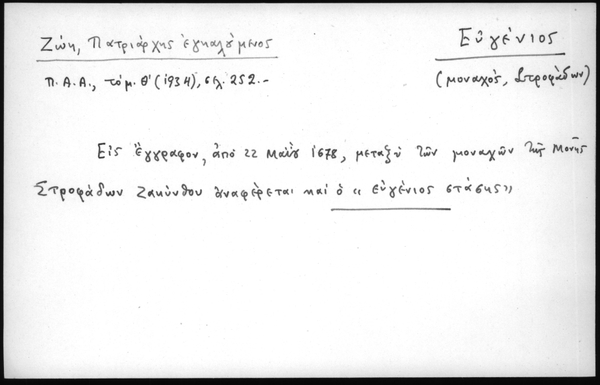 Ζώη, Πατριάρχης ἐγκαλούμενος
Εὐγένιος
Π.Α.Α., τόμ. Θ' (1934), σελ. 252.-
(μοναχός, Στροφάδων)
Εἰς ἔγγραφον, ἀπό 22 Μαΐου 1678, μεταξύ τῶν μοναχῶν τῆς Μονῆς
Στροφάδων Ζακύνθου ἀναφέρεται καί ὁ «εὐγένιος στάσης»